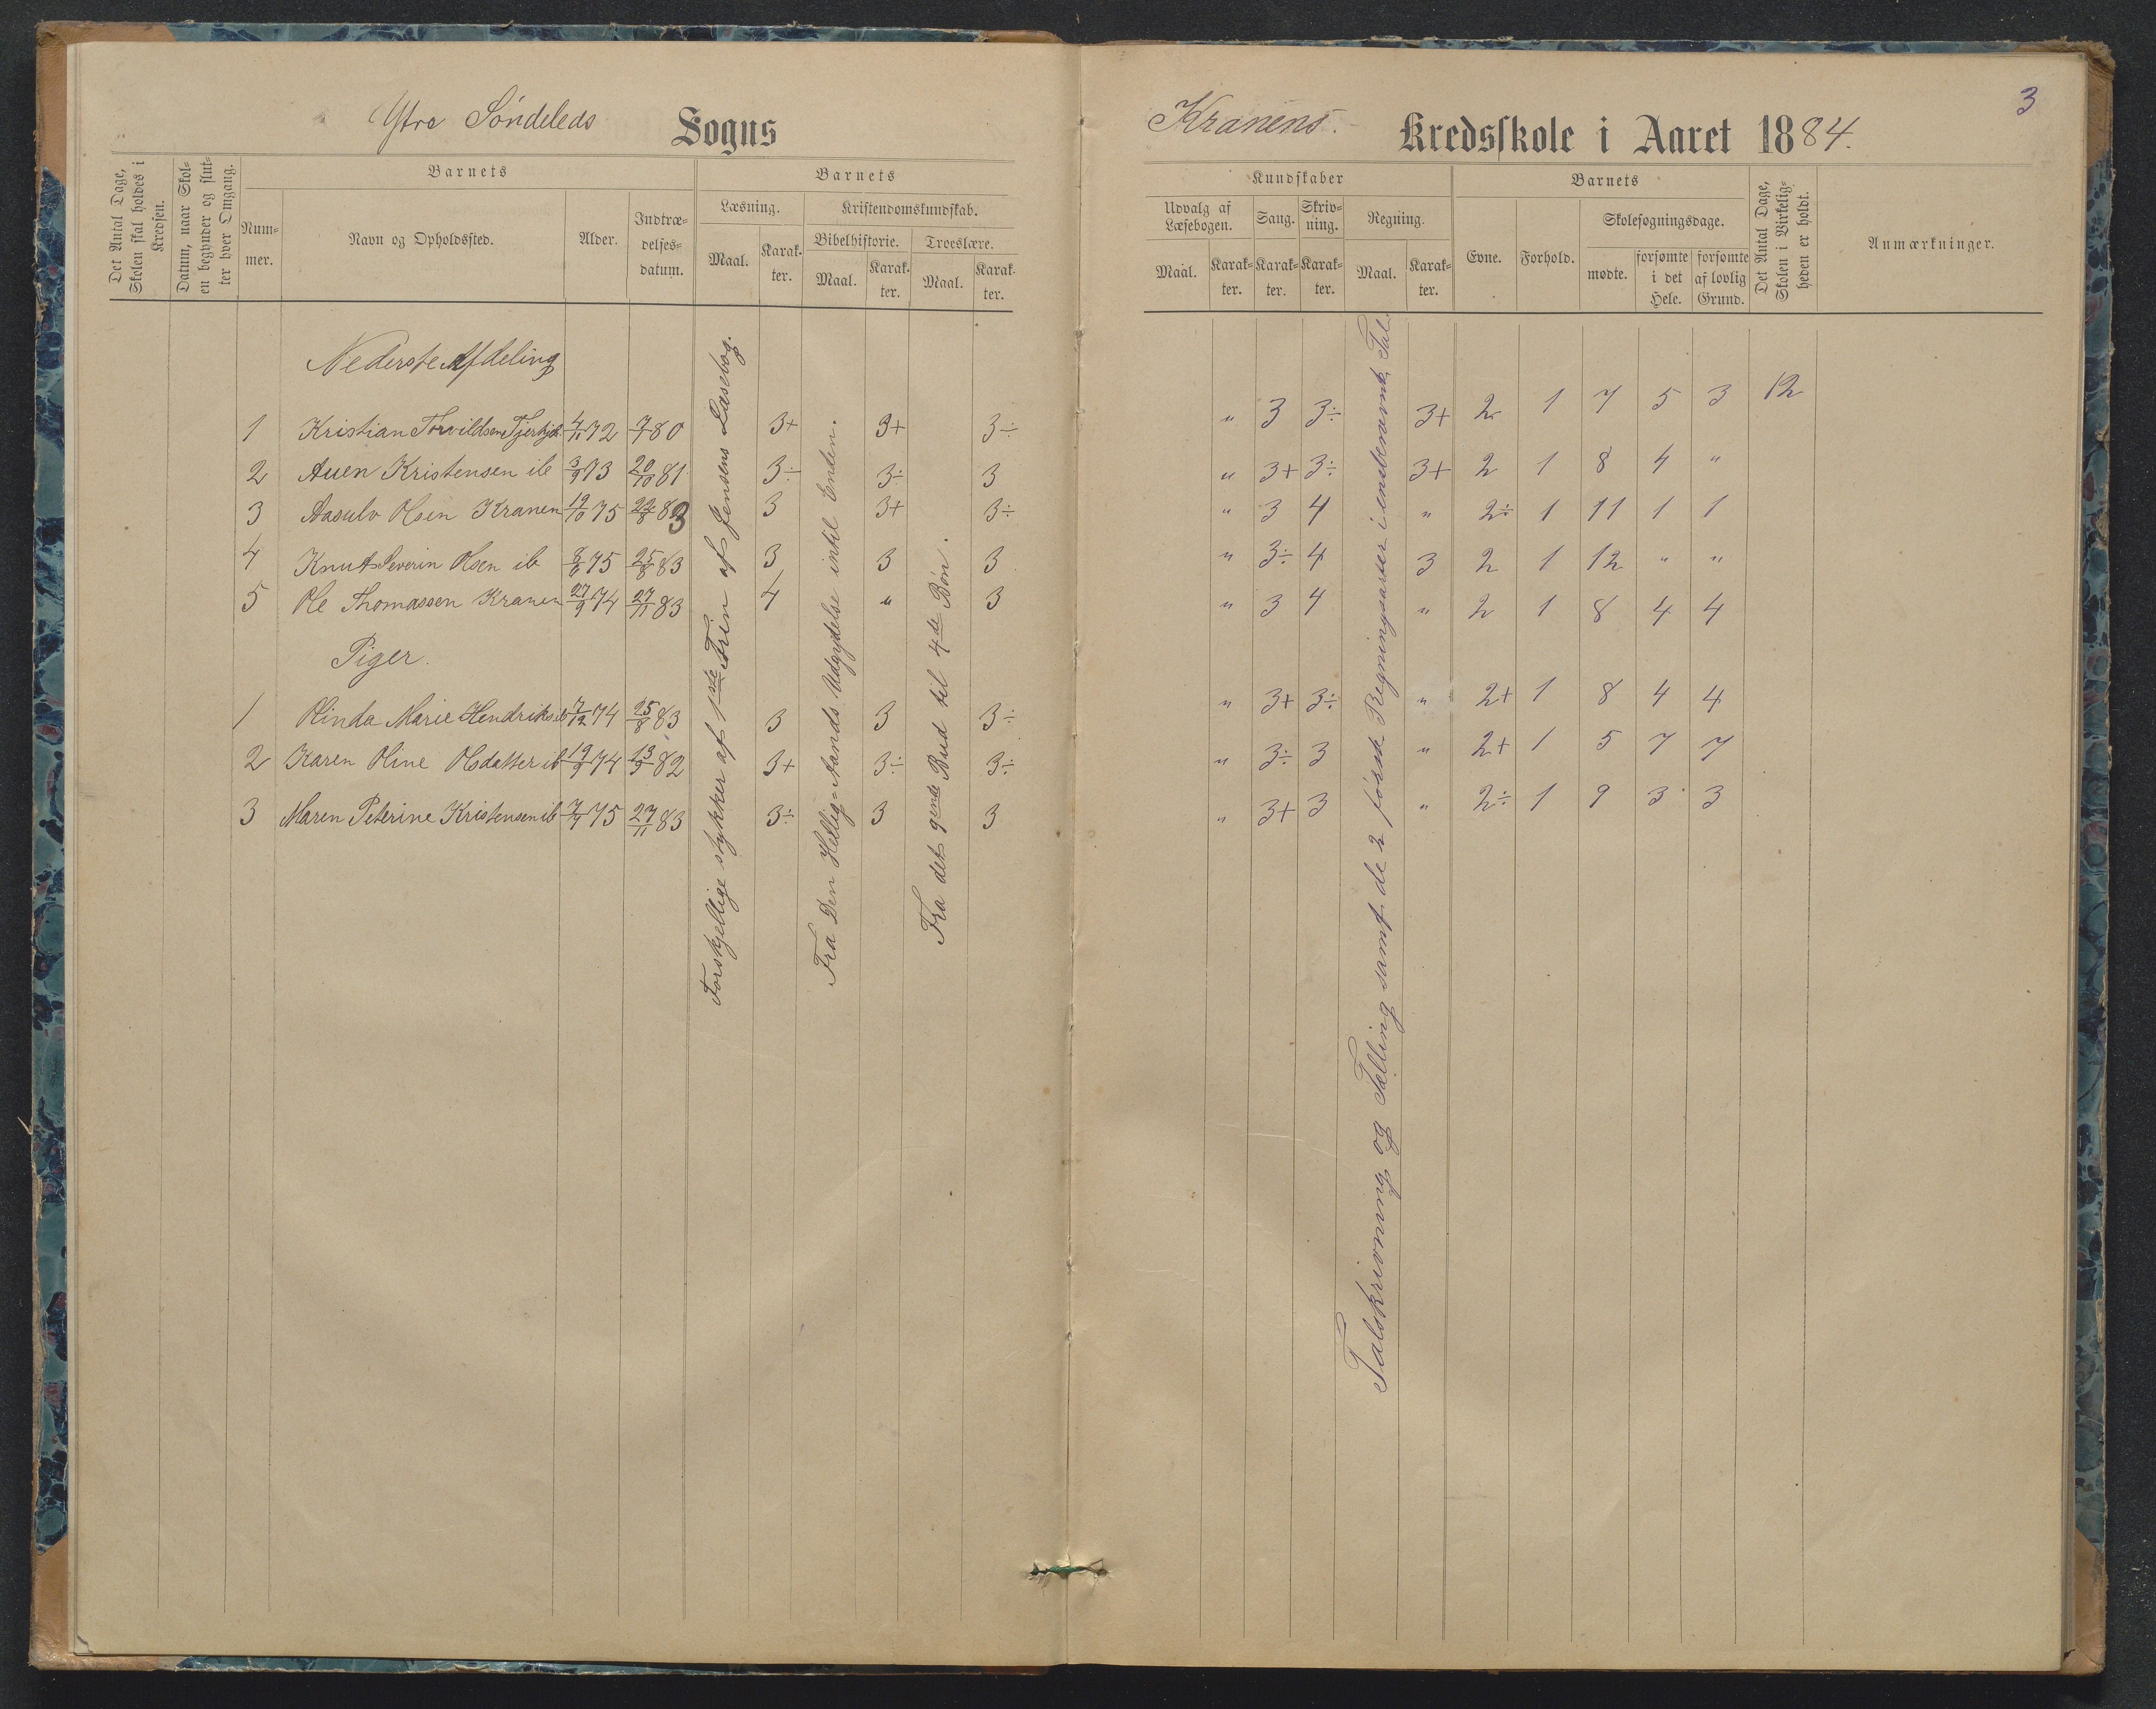 Ytre Söndeleds Sogns
Det Antal Dage, Skolen skal holdes i Kredsen.
Datum, naar Skolen begynder og slutter hver Omgang.
Barnets
Nummer.
Navn og Opholdssted.
Alder.
Indtrædelsesdatum.
Barnets
Læsning.
Kristendomskundskab.
Maal.
Karakter.
Bibelhistorie.
Troeslære.
Maal.
Karakter.
Maal.
Karakter.
Nederste Afdeling
1 Kristian Torvildsen 4/11 72 7/7 80 3+ 3+ 3÷
2 Auen Kristensen ib 3/9 73 20/10 81 3÷ 3÷ 3
3 Aasulv Olsen Kranen 19/10 75 22/8 83 3 3+ 3÷
4 Knut Severin Olsen ib 8/6 75 25/8 83 3 3 3
5 Ole Thomassen Kranen 27/9 74 27/11 83 4 " 3
Piger.
1 Olinda Marie Hendriks ib 7/12 74 25/8 83 3 3 3÷
2 Karen Oline Olsdatter ib 19/9 74 13/3 82 3+ 3÷ 3÷
3 Maren Peterine Kristensen ib 7/7 75 27/11 83 3÷ 3 3
Forskjellige stykker af 1ste Trin af Jensens Læsebog.
Fra Den Hellig-Aands Udgydelse intil Enden.
Fra det 9ende Bud til 4de Bøn.
Kranens Kredsskole i Aaret 1884.
3
Kundskaber
Udvalg af Læsebogen.
Sang.
Skrivning.
Regning.
Maal.
Karakter.
Karakter.
Karakter.
Maal.
Karakter.
Barnets
Evne.
Forhold.
Skolesøgningsdage.
mødte.
forsømte i det Hele.
forsømte af lovlig Grund.
Det Antal Dage, Skolen i Virkeligheden er holdt.
Anmærkninger.
" 3 3÷ 3+ 2 1 7 5 3 12
" 3+ 3÷ 3+ 2 1 8 4 "
" 3 4 " 2÷ 1 11 1 1
" 3÷ 4 3 2 1 12 " "
" 3 4 " 2 1 8 4 4
" 3+ 3÷ " 2+ 1 8 4 4
" 3÷ 3 " 2+ 1 5 7 7
" 3+ 3 " 2÷ 1 9 3 3
Talskrivning og Tælling samt de 2 første Regningsarter i ensbenævnte Tal.